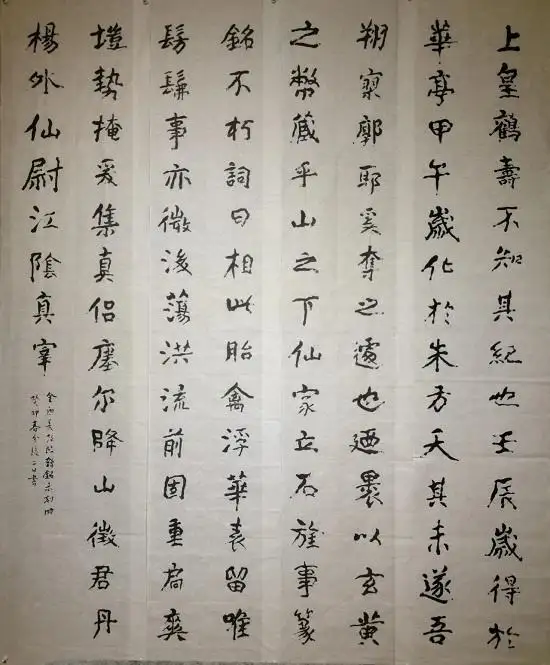 上皇鶴壽不知其紀也壬辰歲得於
華亭甲午歲化於朱方天其未遂吾
翔寥廓耶奚奪之遽也迺裹以玄黄
之幣藏乎山之下仙家立石旌事篆
銘不朽詞曰相此胎禽浮華表留唯
髣髴事亦微浚蕩洪流前固重扃爽
塏勢掩爰集真侣瘞尔降山徵君丹
楊外仙尉江陰真宰
癸卯春分後二日書